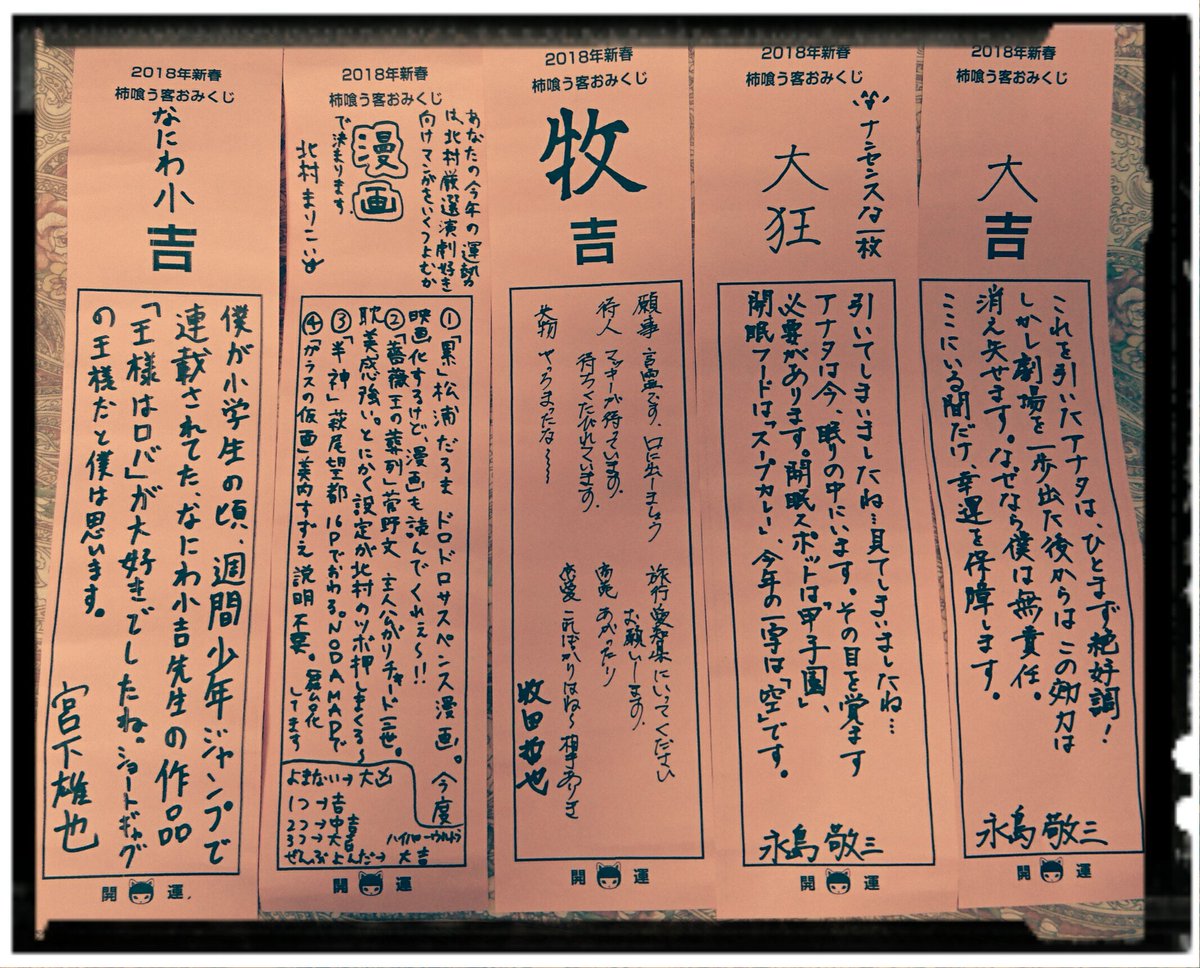 2018年新春
柿喰う客おみくじ
なにわ小
吉
僕が小学生の頃、週間少年ジャンプで
連載されてた、なにわ小吉先生の作品
「王様はロバ」が大好きでしたね。ショートギャグ
の王様だと僕は思います。
宮下雄也
開運
2018年新春
柿喰う客おみくじ
あなたの今年の運勢
は、北村厳選演劇好き
向けマンガをいくつよむか
で決まります。
漫画
北村まりこ
①「累」松浦だるま ドロドロサスペンス漫画。今度
映画化するけど、漫画も読んでくれぇ〜!!
②「薔薇王の葬列」菅野文 主人公がリチャード三世。
耽美感強い。とにかく設定が北村のツボ押しまくる〜
③「半神」萩尾望都 16Pでおわる。NODA MAPで
舞台化してます
④「ガラスの仮面」美内すずえ 説明不要。
よまない→大凶
1つ→吉
2つ→中吉
3つ→大吉
ぜんぶよんだ→ハイパーウルトラ大吉
開運
2018年新春
柿喰う客おみくじ
牧
吉
願事 言霊です、口に出しましょう
待人 マッキーが待っています。
待ちくたびれています。
失物 やっちまったな〜〜〜
旅行 愛媛県にいってください
お願いします。
あがったり
こればかりはね〜 相手ありき
牧田哲也
開運
2018年新春
柿喰う客おみくじ
ナンセンスな一枚
大
狂
引いてしまいましたね…見てしまいましたね…
アナタは今、眠りの中にいます。その目を覚ます
必要があります。開眠スポットは「甲子園」、
開眠フードは「スープカレー」、今年の一字は「空」です。
永島敬三
開運
2018年新春
柿喰う客おみくじ
大
吉
これを引いたアナタは、ひとまず絶好調!
しかし劇場を一歩出た後からはこの効力は
消え失せます。なぜなら僕は無責任。
ここにいる間だけ、幸運を保障します。
永島敬三
開運